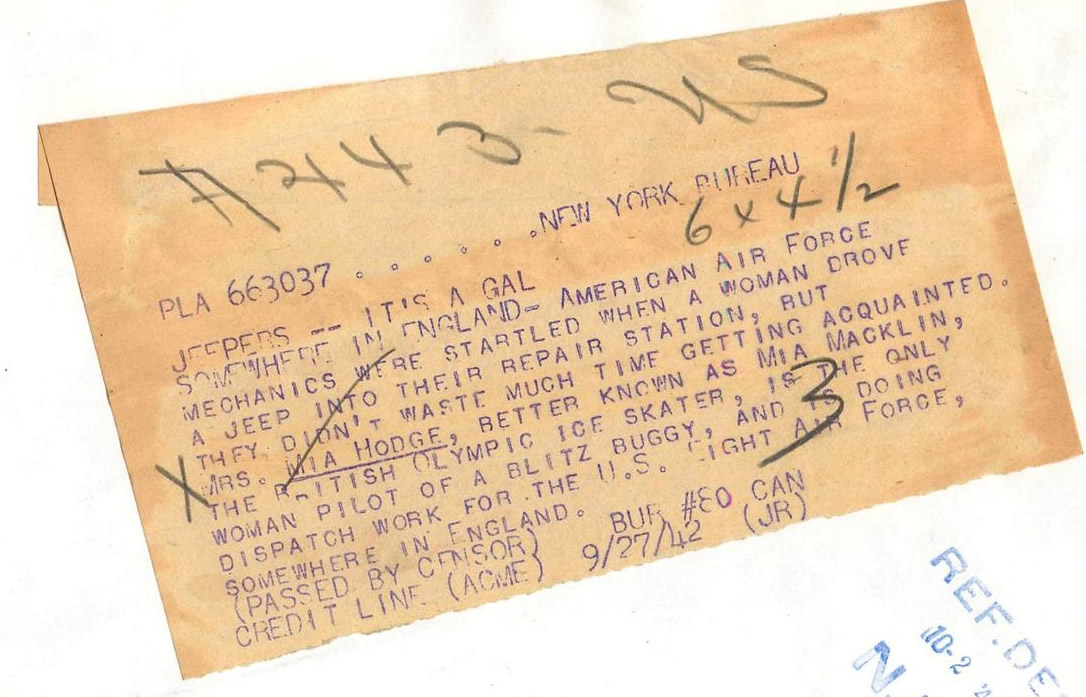 7243- NS
PLA 663037 . . . . . . NEW YORK BUREAU
6 x 4 1/2
JEEPERS -- IT'S A GAL
SOMEWHERE IN ENGLAND- AMERICAN AIR FORCE
MECHANICS WERE STARTLED WHEN A WOMAN DROVE
A JEEP INTO THEIR REPAIR STATION, BUT
THEY DIDN'T WASTE MUCH TIME GETTING ACQUAINTED.
X MRS. MIA HODGE, BETTER KNOWN AS MIA MACKLIN,
THE BRITISH OLYMPIC ICE SKATER, IS THE ONLY
WOMAN PILOT OF A BLITZ BUGGY, AND IS DOING
DISPATCH WORK FOR THE U.S. EIGHT AIR FORCE,
SOMEWHERE IN ENGLAND.
3
(PASSED BY CENSOR) BUR #80 CAN
CREDIT LINE (ACME) 9/27/42 (JR)
REF. DE
10-2
N